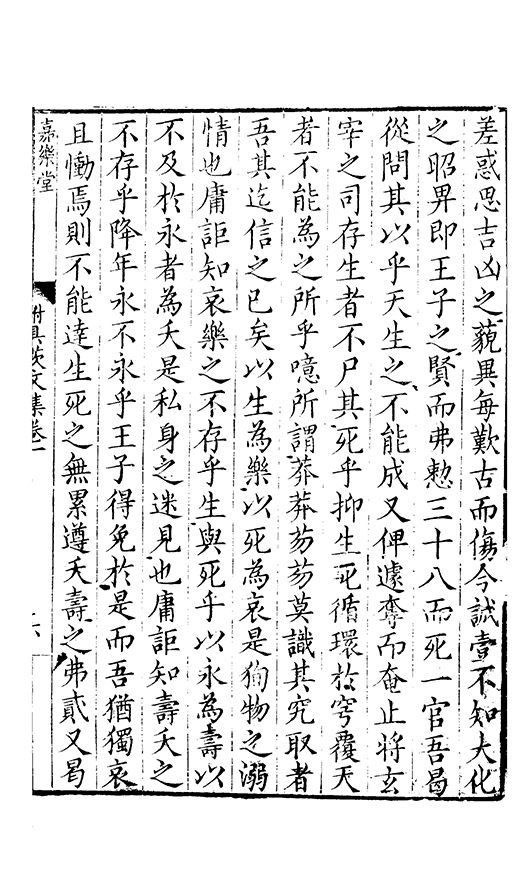 差惑思吉凶之藐異每歎古而傷今誠壹不知大化
之昭畀即王子之賢而弗慭三十八而死一官吾曷
從問其以乎天生之不能成又俾遽奪而奄止將玄
宰之司存生者不尸其死乎抑生死循環於穹覆天
者不能為之所乎噫所謂莽莽芴芴莫識其究取者
吾其迄信之已矣以生為樂以死為哀是狥物之溺
情也庸詎知哀樂之不存乎生與死乎以永為壽以
不及於永者為夭是私身之迷見也庸詎知壽夭之
不存乎降年永不永乎王子得免於是而吾猶獨哀
且慟焉則不能達生死之無累遵夭壽之弗貳又曷
嘉樂堂
具茨文集卷一